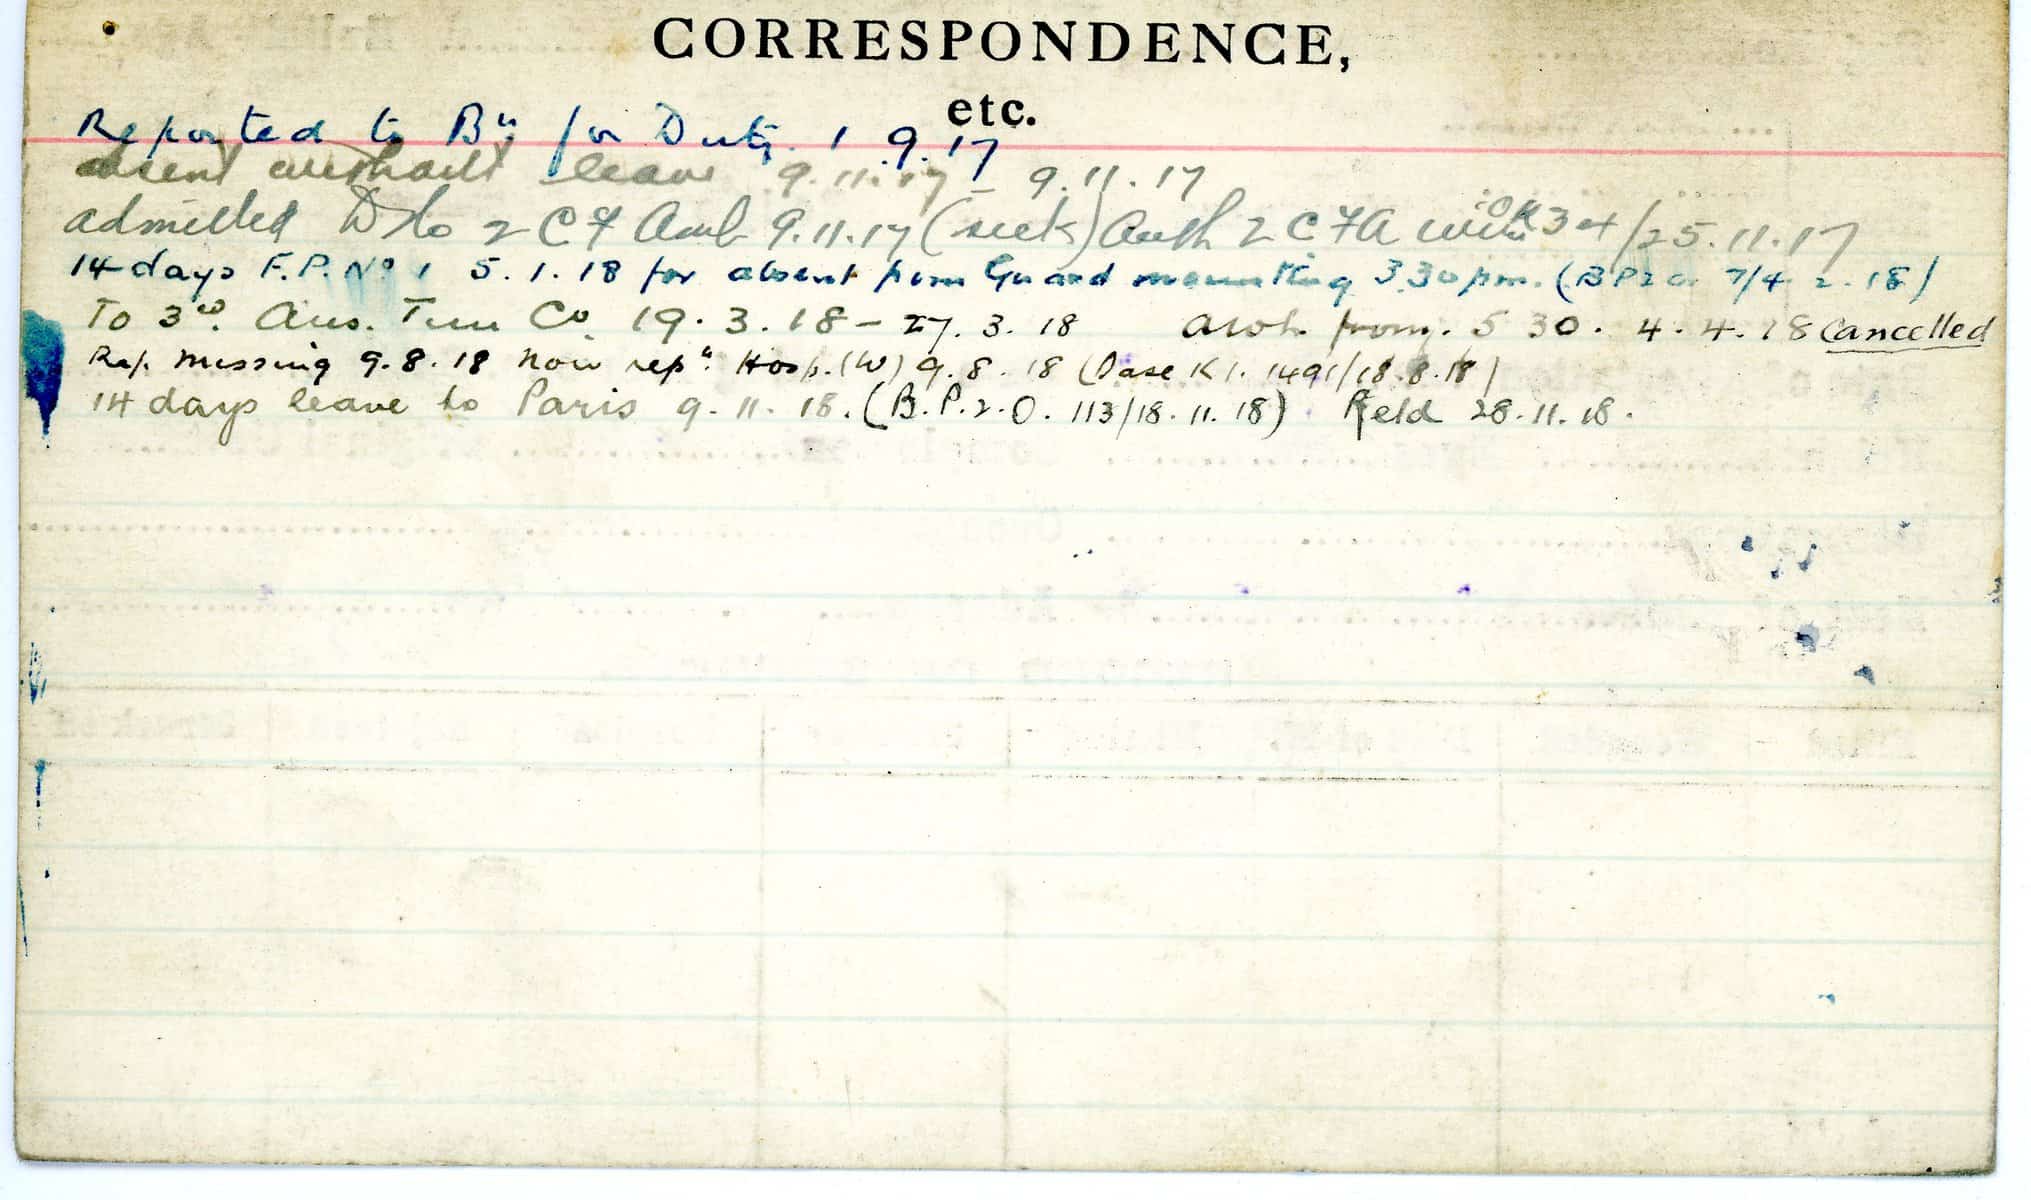 CORRESPONDENCE,
etc.
Reported to Bn for Duty. 1.9.17
absent without leave 9.11.17 – 9.11.17
admitted to 2 C F Amb 9.11.17 (sick) Auth 2 C F A 34/25.11.17
14 days F.P. No 1 5.1.18 for absent from Guard mounting 3.30 pm. (B P 2 O 7/4 2.18)
To 3rd. Aus. Tun Co 19.3.18 – 27.3.18 awol. from. 5 30. 4.4.18 Cancelled
Rep. missing 9.8.18 now rep. Hosp. (W) 9.8.18 (Base K1. 1491/18.8.18)
14 days leave to Paris 9.11.18. (B.P.2.O. 113/18.11.18) Field 28.11.18.